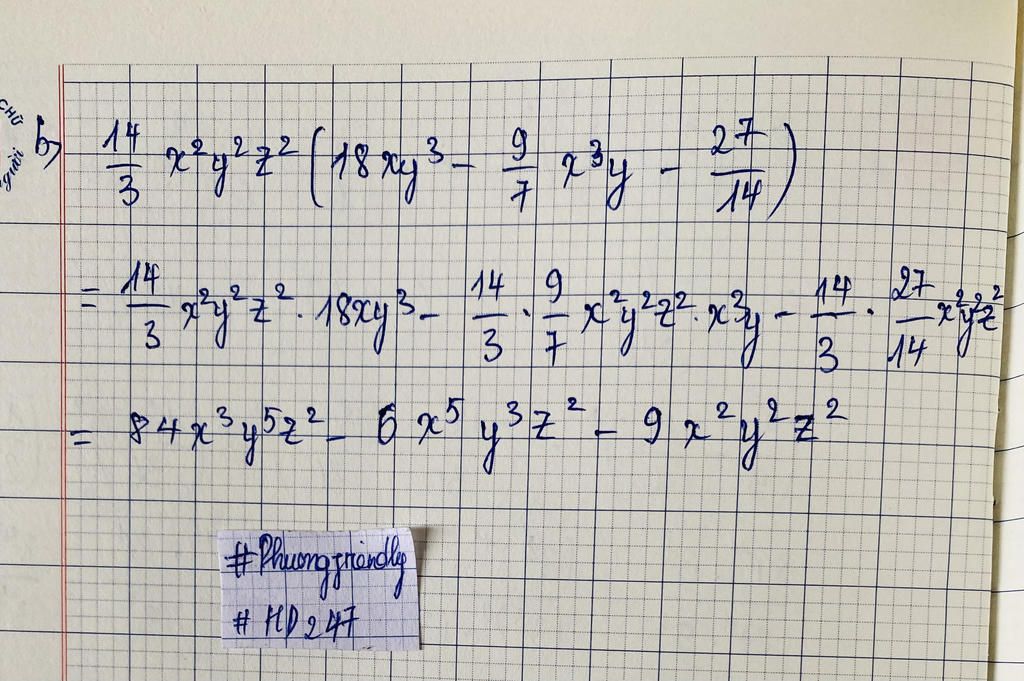 CHỮ
giải
b) 14/3 x²y²z² (18xy³ - 9/7 x³y - 27/14)
= 14/3 x²y²z² . 18xy³ - 14/3 . 9/7 x²y²z² . x³y - 14/3 . 27/14 x²y²z²
= 84x³y⁵z² - 6x⁵y³z² - 9x²y²z²
#Phuongfriendly
# HD247